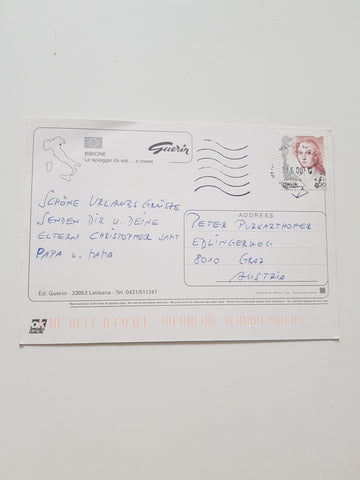 Guerin
BIBIONE
Le spiagge da est... a ovest
ITALIA
SCHÖNE URLAUBSGRÜSSE
SENDEN DIR U. DEINE
ELTERN CHRISTOPHER SAMT
PAPA u. MAMA
ADDRESS
PETER PURKARTHOFER
EDLINGERWEG
8010 GRAZ
AUSTRIA
Ed. Guerin - 33053 Latisana - Tel. 0431/511341